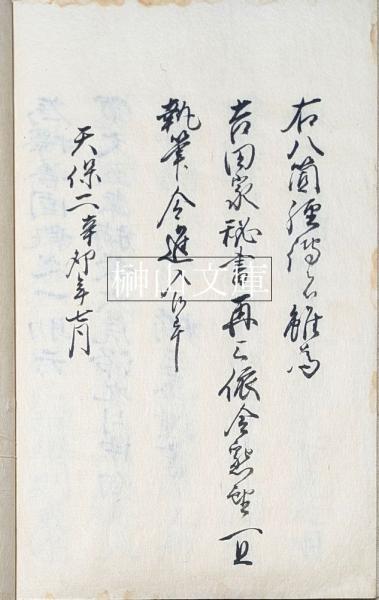 右八箇傳者雖為
吉田家秘書再三依令懇望
執筆令進入候
天保二辛卯年七月
榊山文庫